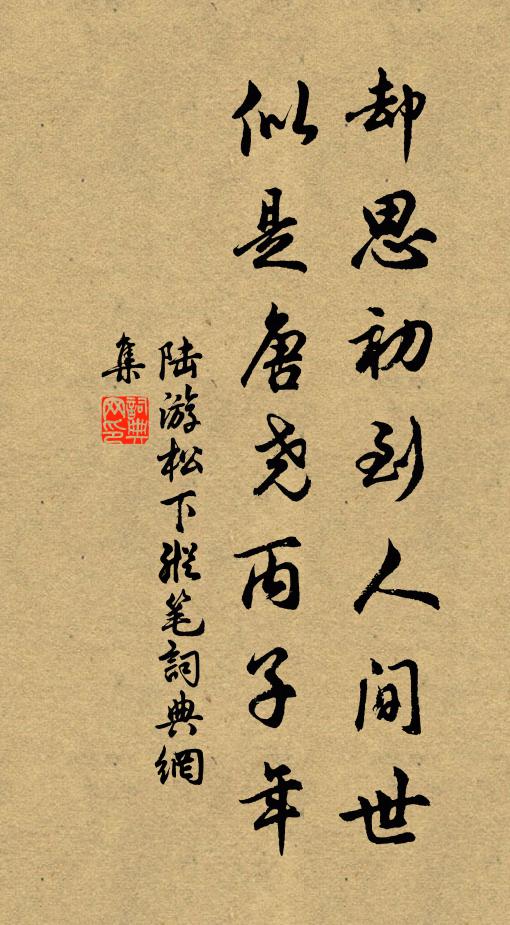 却思初到人间世
似是唐尧丙子年
陆游松下縱笔詞典網
集
詞典网印